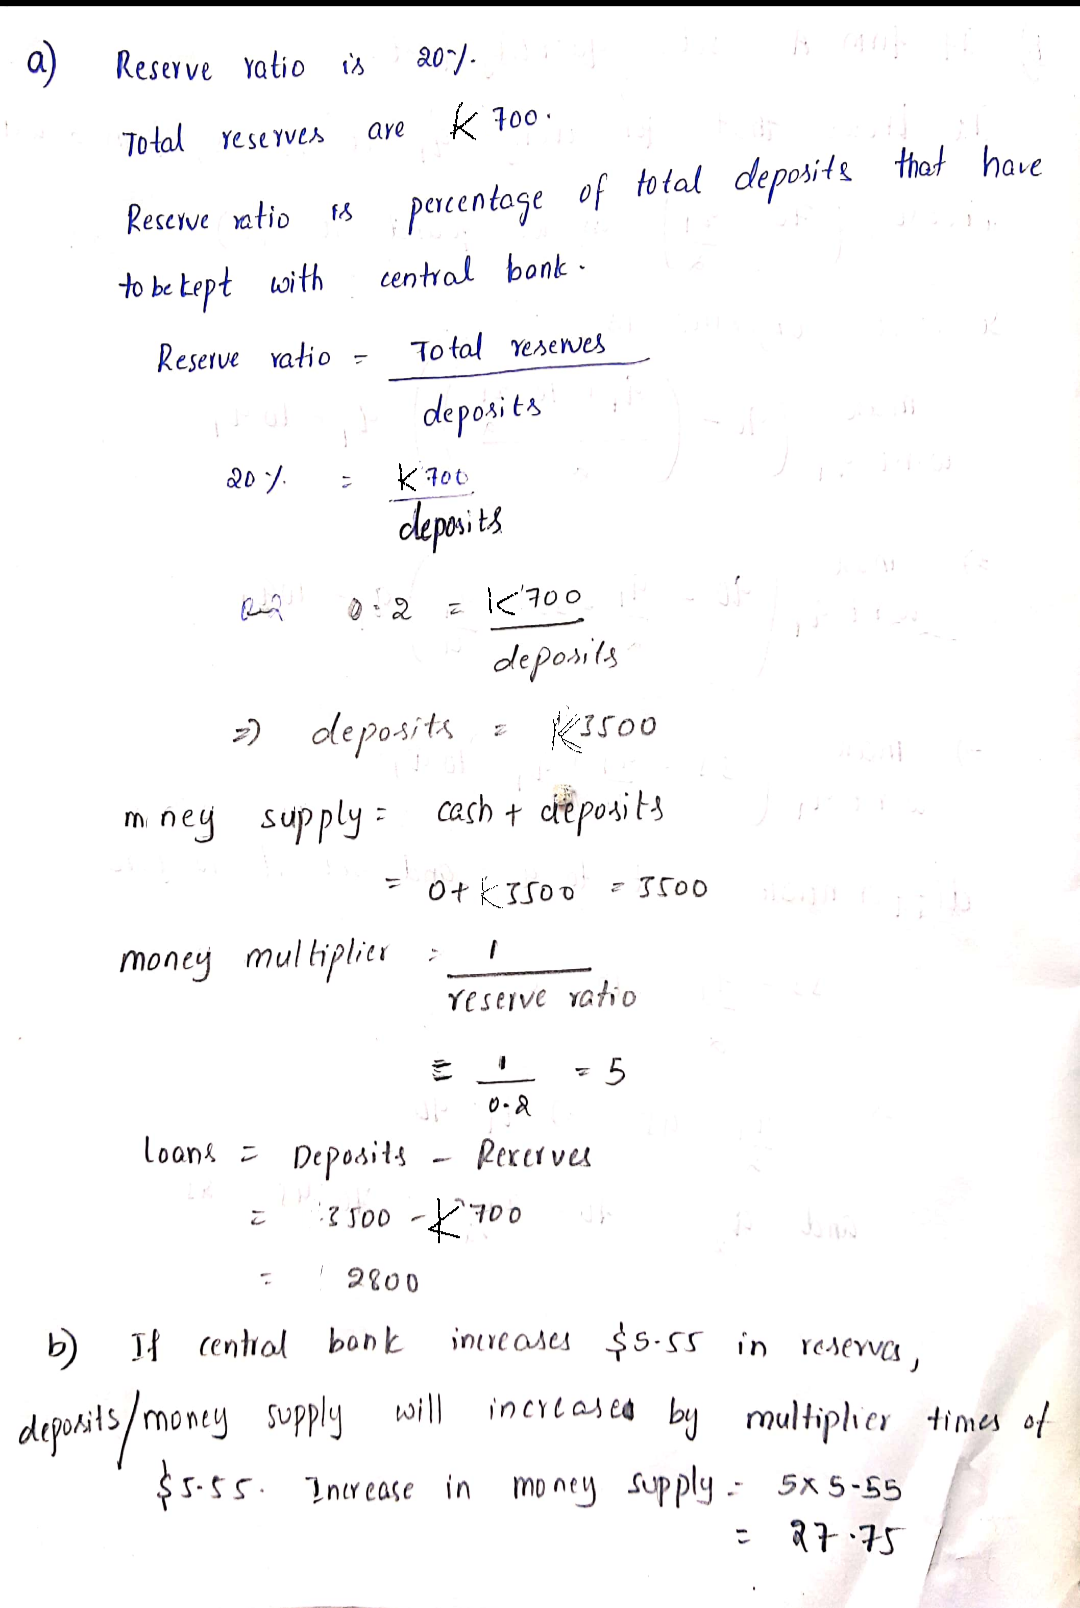 a) Reserve ratio is 20%.
Total reserves are K 700.
Reserve ratio is percentage of total deposits that have
to be kept with central bank.
Reserve ratio = Total reserves
deposits
20 % = K 700
deposits
0.2 = K 700
deposits
=> deposits = K3500
m ney supply = cash + deposits
= 0 + K 3500 = 3500
money multiplier = 1
reserve ratio
= 1 = 5
0.2
loans = Deposits - Reserves
= 3500 - K 700
= 2800
b) If central bank increases $5.55 in reserves,
deposits/money supply will increased by multiplier times of
$5.55. Increase in money supply = 5x 5.55
= 27.75